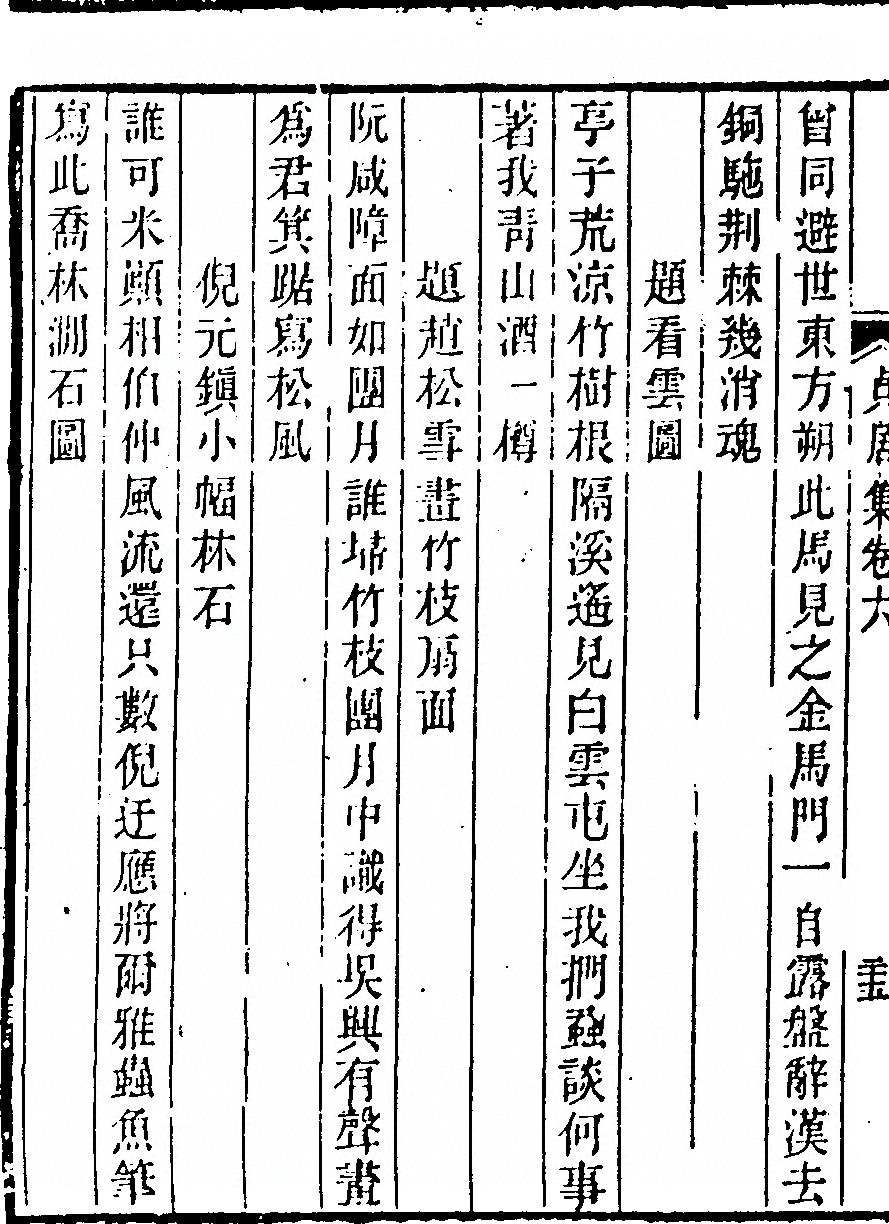 貞居集卷六
曾同避世東方朔此馬見之金馬門一自露盤辭漢去
銅駞荆棘幾消魂
題看雲圖
亭子荒凉竹樹根隔溪遥見白雲屯坐我捫蝨談何事
著我青山酒一樽
題趙松雪畫竹枝扇面
阮咸障面如團月誰埽竹枝團月中識得吳興有聲畫
爲君箕踞寫松風
倪元鎮小幅林石
誰可米顛相伯仲風流還只數倪迂應將爾雅蟲魚筆
寫此喬林澗石圖